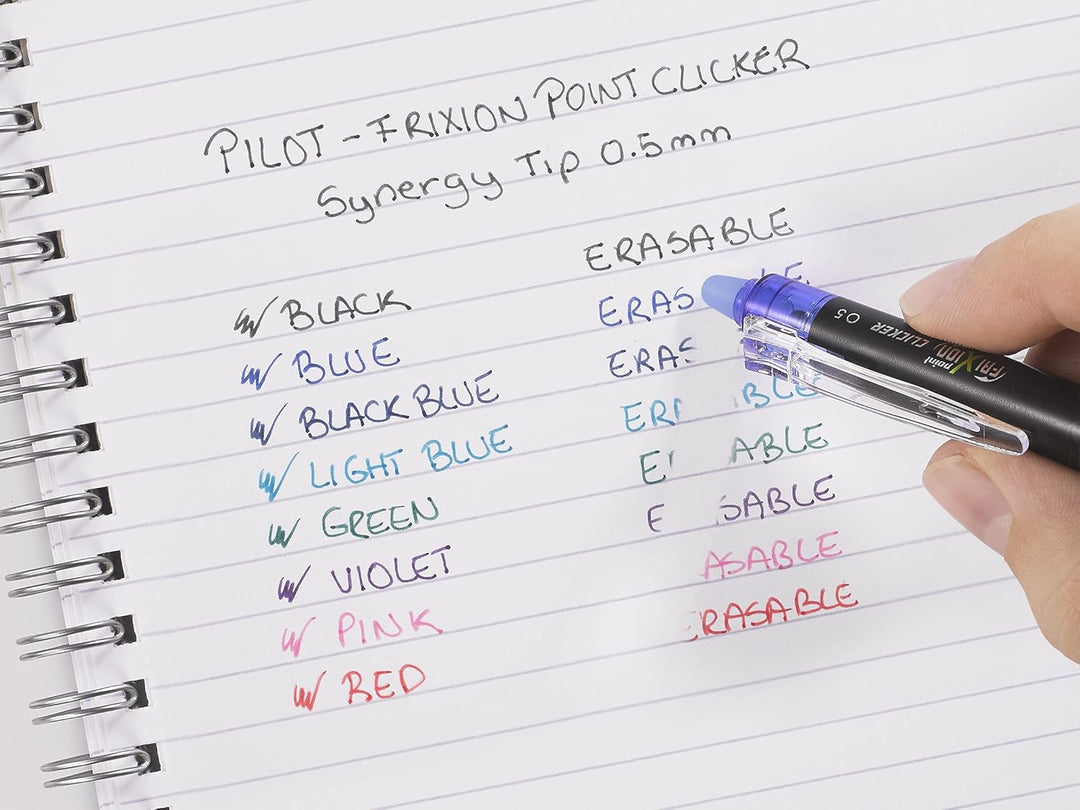 PILOT - FRIXION POINT CLICKER
Synergy Tip 0.5mm
ERASABLE
BLACK
ERAS LE
BLUE
ERAS
BLACK BLUE
ER BLE
LIGHT BLUE
E ABLE
GREEN
E SABLE
VIOLET
ASABLE
PINK
RASABLE
RED
FRIXION point CLICKER 05